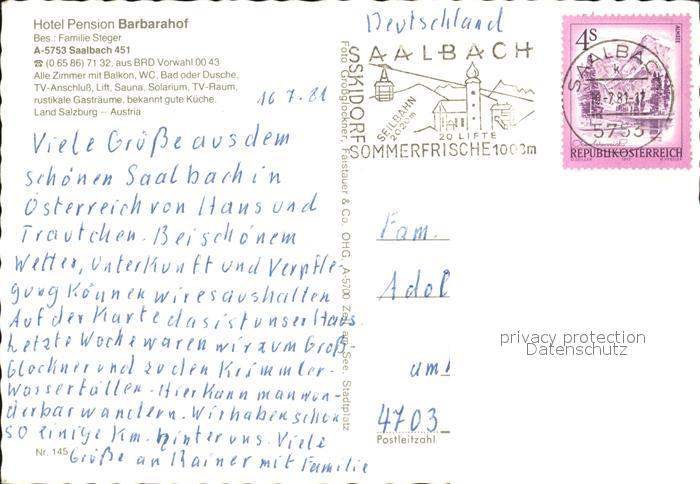 Hotel Pension Barbarahof
Bes.: Familie Steger
A-5753 Saalbach 451
☎ (0 65 86) 71 32, aus BRD Vorwahl 00 43
Alle Zimmer mit Balkon, WC, Bad oder Dusche,
TV-Anschluß, Lift, Sauna, Solarium, TV-Raum,
rustikale Gasträume, bekannt gute Küche.
Land Salzburg – Austria
16.7.81
Viele Größe aus dem
schönen Saalbach in
Österreich von Hans und
Trautchen. Bei schönem
Wetter, Unterkunft und Verpfle-
gung können wir es aushalten
Auf der Karte da ist unser Haus.
Letzte Woche waren wir zum Groß-
Glockner und zu den Krimmler-
Wasserfällen. Hier kann man wun-
derbar wandern. Wir haben schon
so einige Km. hinter uns. Viele
Größe an Rainer mit Familie
Nr. 145
Foto Großglockner, Faistauer & Co. OHG, A-5700 Zell am See, Stadtplatz
Deutschland
SAALBACH
SKIDORF
SEILBAHN
2020m
20 LIFTE
SOMMERFRISCHE 1003m
4S
ALMSEE
REPUBLIK ÖSTERREICH
SAALBACH
.7.81-17
5753
Fam.
Adol
um
4703
Postleitzahl
privacy protection
Datenschutz